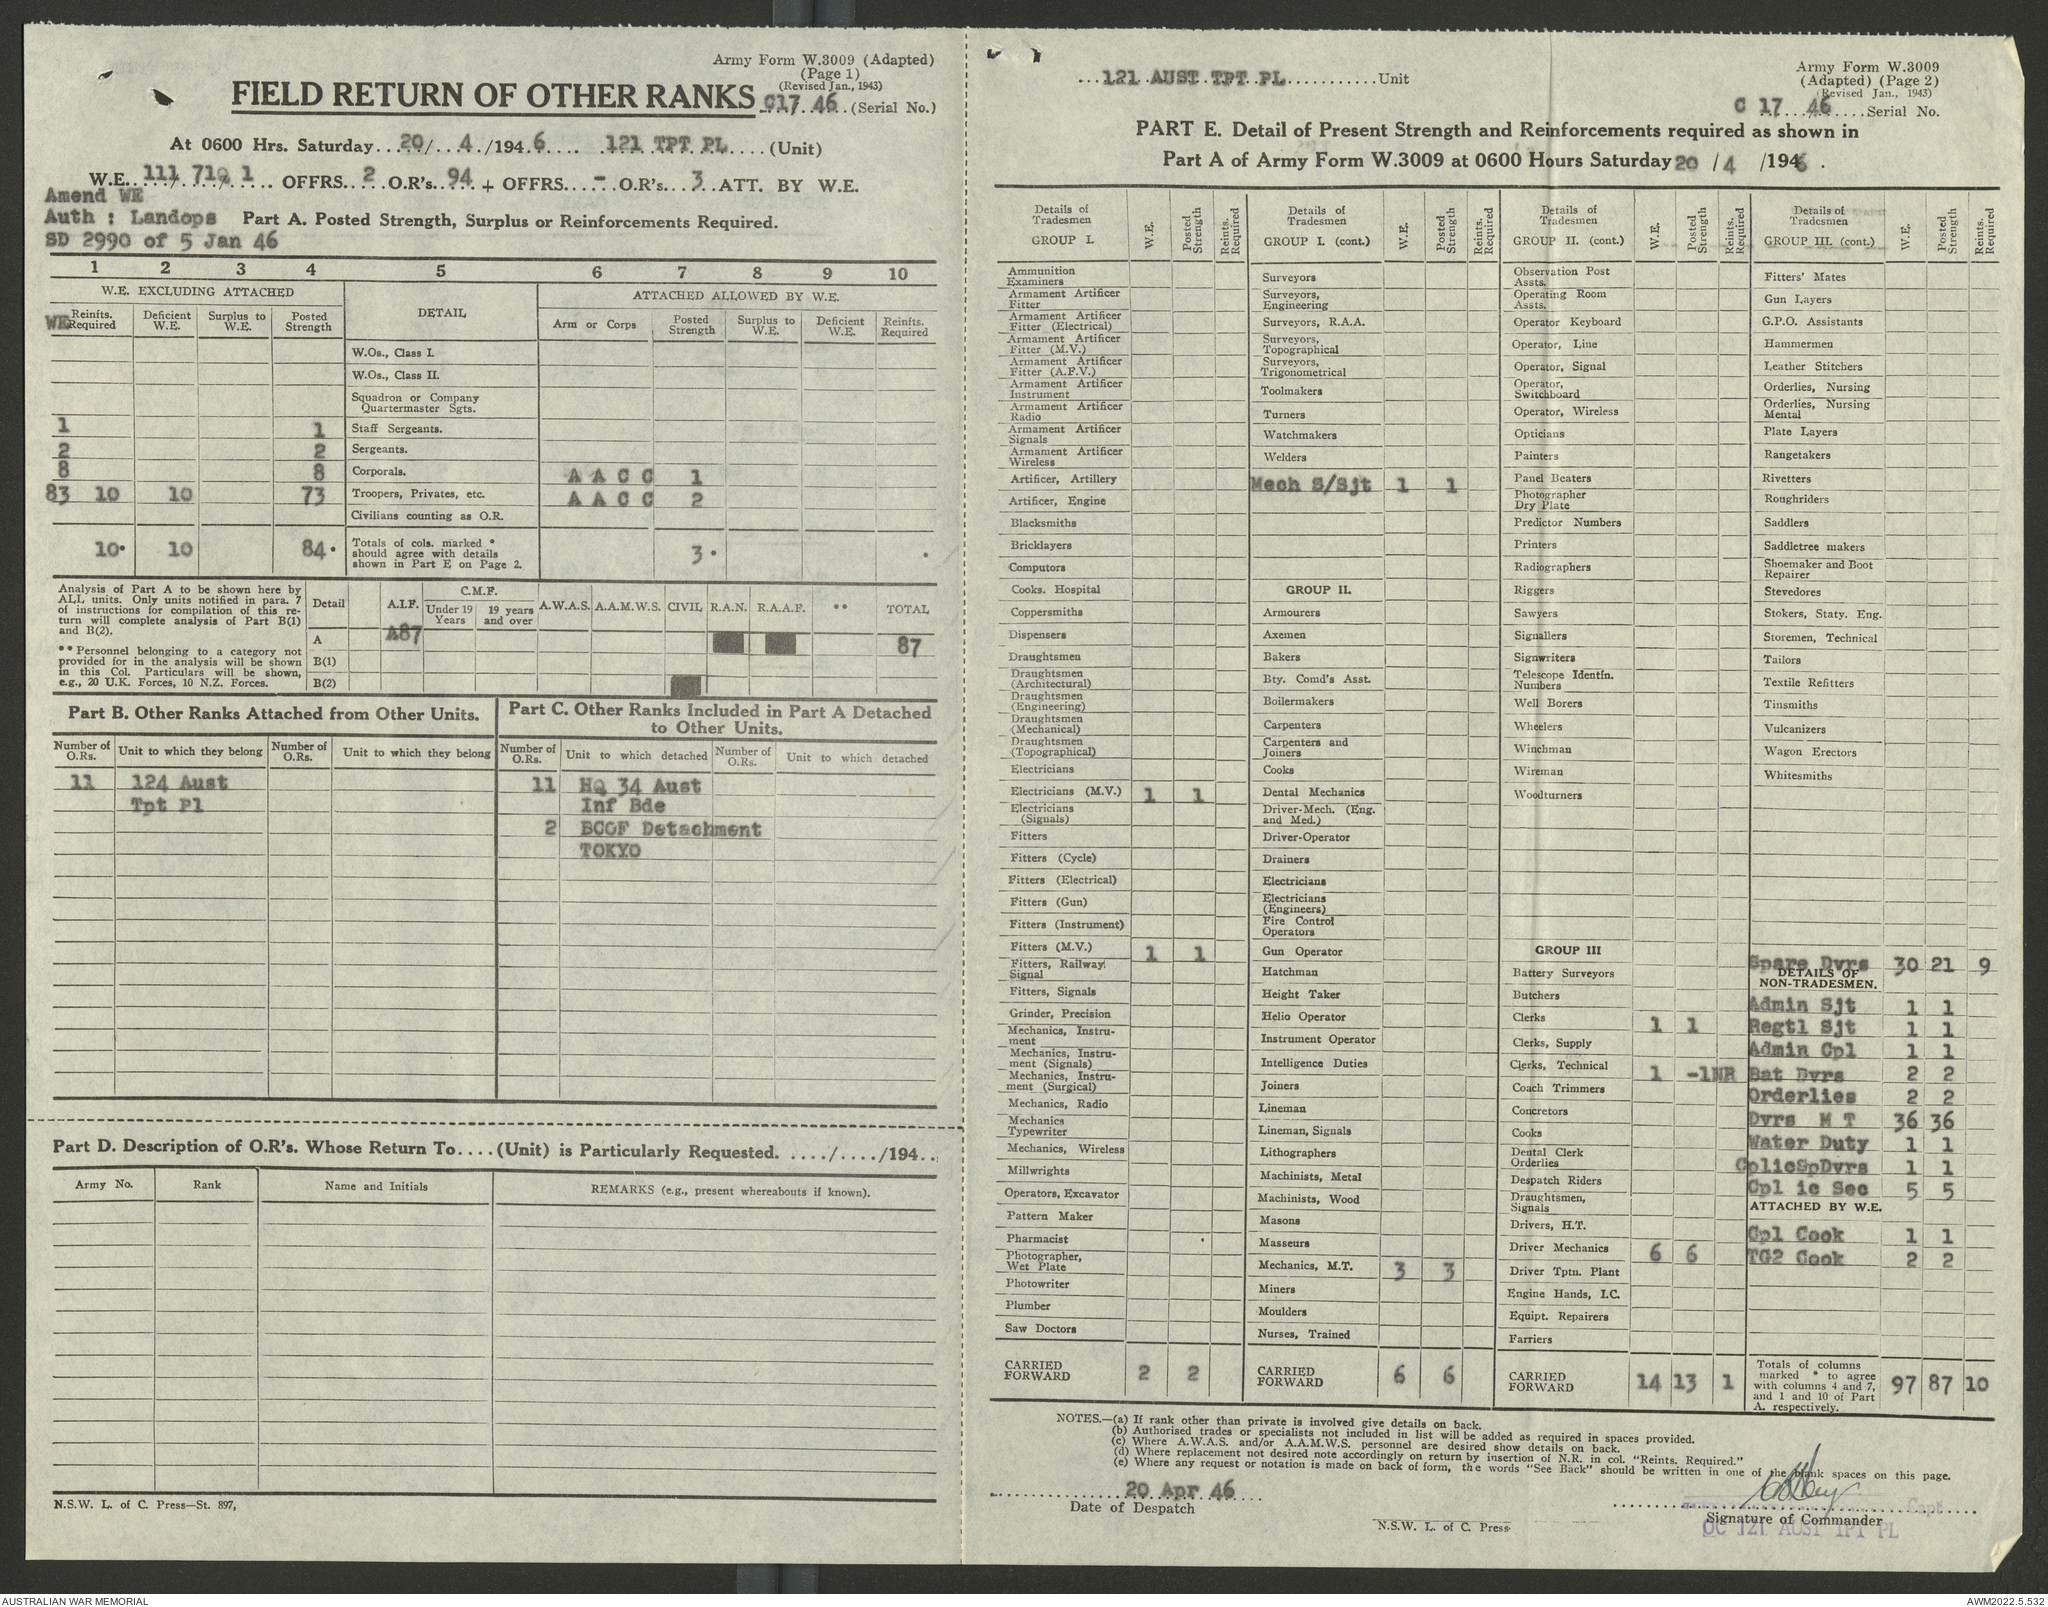 Army Form W.3009 (Adapted)
(Page 1)
(Revised Jan., 1943)
FIELD RETURN OF OTHER RANKS C17 46 (Serial No.)
At 0600 Hrs. Saturday 20/ 4 /1946 121 TPT PL (Unit)
W.E. 111/ 719/ 1 OFFRS. 2 O.R's. 94 + OFFRS. - O.R's. 3 ATT. BY W.E.
Amend WE
Auth : Landops Part A. Posted Strength, Surplus or Reinforcements Required.
SD 2990 of 5 Jan 46
1 2 3 4 5 6 7 8 9 10
W.E. EXCLUDING ATTACHED DETAIL ATTACHED ALLOWED BY W.E.
WE Reinfts. Required Deficient W.E. Surplus to W.E. Posted Strength Arm or Corps Posted Strength Surplus to W.E. Deficient W.E. Reinfts. Required
W.Os., Class I.
W.Os., Class II.
Squadron or Company Quartermaster Sgts.
1 1 Staff Sergeants.
2 2 Sergeants.
8 8 Corporals. A A C C 1
83 10 10 73 Troopers, Privates, etc. A A C C 2
Civilians counting as O.R.
10* 10 84* Totals of cols. marked * should agree with details shown in Part E on Page 2. 3* *
Analysis of Part A to be shown here by ALL units. Only units notified in para. 7 of instructions for compilation of this return will complete analysis of Part B(1) and B(2).
**Personnel belonging to a category not provided for in the analysis will be shown in this Col. Particulars will be shown, e.g., 20 U.K. Forces, 10 N.Z. Forces.
Detail A.I.F. C.M.F. Under 19 Years 19 years and over A.W.A.S. A.A.M.W.S. CIVIL R.A.N. R.A.A.F. ** TOTAL
A A87 87
B(1)
B(2)
Part B. Other Ranks Attached from Other Units.
Number of O.Rs. Unit to which they belong Number of O.Rs. Unit to which they belong
11 124 Aust
Tpt Pl
Part C. Other Ranks Included in Part A Detached to Other Units.
Number of O.Rs. Unit to which detached Number of O.Rs. Unit to which detached
11 HQ 34 Aust
Inf Bde
2 BCOF Detachment
TOKYO
Part D. Description of O.R's. Whose Return To....(Unit) is Particularly Requested. ..../..../194..
Army No. Rank Name and Initials REMARKS (e.g., present whereabouts if known).
N.S.W. L. of C. Press—St. 897,
121 AUST TPT PL Unit
Army Form W.3009
(Adapted) (Page 2)
(Revised Jan., 1943)
C 17 46 Serial No.
PART E. Detail of Present Strength and Reinforcements required as shown in
Part A of Army Form W.3009 at 0600 Hours Saturday 20 /4 /1946.
Details of Tradesmen GROUP I. W.E. Posted Strength Reints. Required
Ammunition Examiners
Armament Artificer Fitter
Armament Artificer Fitter (Electrical)
Armament Artificer Fitter (M.V.)
Armament Artificer Fitter (A.F.V.)
Armament Artificer Instrument
Armament Artificer Radio
Armament Artificer Signals
Armament Artificer Wireless
Artificer, Artillery
Artificer, Engine
Blacksmiths
Bricklayers
Computors
Cooks. Hospital
Coppersmiths
Dispensers
Draughtsmen
Draughtsmen (Architectural)
Draughtsmen (Engineering)
Draughtsmen (Mechanical)
Draughtsmen (Topographical)
Electricians
Electricians (M.V.) 1 1
Electricians (Signals)
Fitters
Fitters (Cycle)
Fitters (Electrical)
Fitters (Gun)
Fitters (Instrument)
Fitters (M.V.) 1 1
Fitters, Railway Signal
Fitters, Signals
Grinder, Precision
Mechanics, Instrument
Mechanics, Instrument (Signals)
Mechanics, Instrument (Surgical)
Mechanics, Radio
Mechanics Typewriter
Mechanics, Wireless
Millwrights
Operators, Excavator
Pattern Maker
Pharmacist
Photographer, Wet Plate
Photowriter
Plumber
Saw Doctors
CARRIED FORWARD 2 2
Details of Tradesmen GROUP I. (cont.) W.E. Posted Strength Reints. Required
Surveyors
Surveyors, Engineering
Surveyors, R.A.A.
Surveyors, Topographical
Surveyors, Trigonometrical
Toolmakers
Turners
Watchmakers
Welders
Mech S/Sjt 1 1
GROUP II.
Armourers
Axemen
Bakers
Bty. Comd's Asst.
Boilermakers
Carpenters
Carpenters and Joiners
Cooks
Dental Mechanics
Driver-Mech. (Eng. and Med.)
Driver-Operator
Drainers
Electricians
Electricians (Engineers)
Fire Control Operators
Gun Operator
Hatchman
Height Taker
Helio Operator
Instrument Operator
Intelligence Duties
Joiners
Lineman
Lineman, Signals
Lithographers
Machinists, Metal
Machinists, Wood
Masons
Masseurs
Mechanics, M.T. 3 3
Miners
Moulders
Nurses, Trained
CARRIED FORWARD 6 6
Details of Tradesmen GROUP II. (cont.) W.E. Posted Strength Reints. Required
Observation Post Assts.
Operating Room Assts.
Operator Keyboard
Operator, Line
Operator, Signal
Operator, Switchboard
Operator, Wireless
Opticians
Painters
Panel Beaters
Photographer Dry Plate
Predictor Numbers
Printers
Radiographers
Riggers
Sawyers
Signallers
Signwriters
Telescope Identfn. Numbers
Well Borers
Wheelers
Winchman
Wireman
Woodturners
GROUP III
Battery Surveyors
Butchers
Clerks 1 1
Clerks, Supply
Clerks, Technical 1 -1NR
Coach Trimmers
Concretors
Cooks
Dental Clerk Orderlies
Despatch Riders
Draughtsmen, Signals
Drivers, H.T.
Driver Mechanics 6 6
Driver Tptn. Plant
Engine Hands, I.C.
Equipt. Repairers
Farriers
CARRIED FORWARD 14 13 1
Details of Tradesmen GROUP III. (cont.) W.E. Posted Strength Reints. Required
Fitters' Mates
Gun Layers
G.P.O. Assistants
Hammermen
Leather Stitchers
Orderlies, Nursing
Orderlies, Nursing Mental
Plate Layers
Rangetakers
Rivetters
Roughriders
Saddlers
Saddletree makers
Shoemaker and Boot Repairer
Stevedores
Stokers, Staty. Eng.
Storemen, Technical
Tailors
Textile Refitters
Tinsmiths
Vulcanizers
Wagon Erectors
Whitesmiths
Spare Dvrs 30 21 9
DETAILS OF NON-TRADESMEN.
Admin Sjt 1 1
Regtl Sjt 1 1
Admin Cpl 1 1
Bat Dvrs 2 2
Orderlies 2 2
Dvrs M T 36 36
Water Duty 1 1
CplicSpDvrs 1 1
Cpl ic Sec 5 5
ATTACHED BY W.E.
Cpl Cook 1 1
TG2 Cook 2 2
Totals of columns marked * to agree with columns 4 and 7, and 1 and 10 of Part A. respectively. 97 87 10
NOTES.—(a) If rank other than private is involved give details on back.
(b) Authorised trades or specialists not included in list will be added as required in spaces provided.
(c) Where A.W.A.S. and/or A.A.M.W.S. personnel are desired show details on back.
(d) Where replacement not desired note accordingly on return by insertion of N.R. in col. "Reints. Required."
(e) Where any request or notation is made on back of form, the words "See Back" should be written in one of the blank spaces on this page.
20 Apr 46
Date of Despatch
Capt
Signature of Commander
OC 121 AUST TPT PL
N.S.W. L. of C. Press
AUSTRALIAN WAR MEMORIAL
AWM2022.5.532